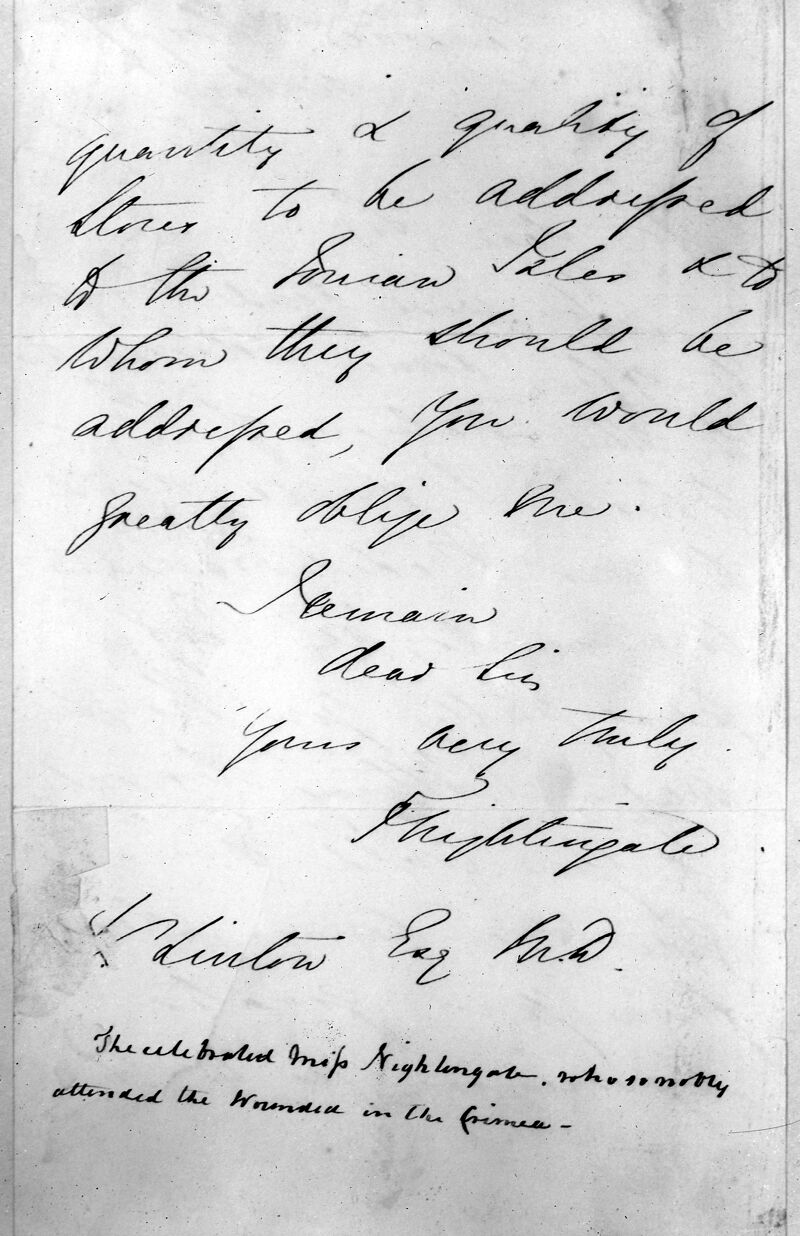 quantity & quality of
Stores to be addressed
to the Ionian Isles & to
whom they should be
addressed, you would
greatly oblige me.
I remain
dear Sir
Yours very truly
F Nightingale
Linton Esq M.D.
The celebrated Miss Nightingale, who so nobly
attended the Wounded in the Crimea -